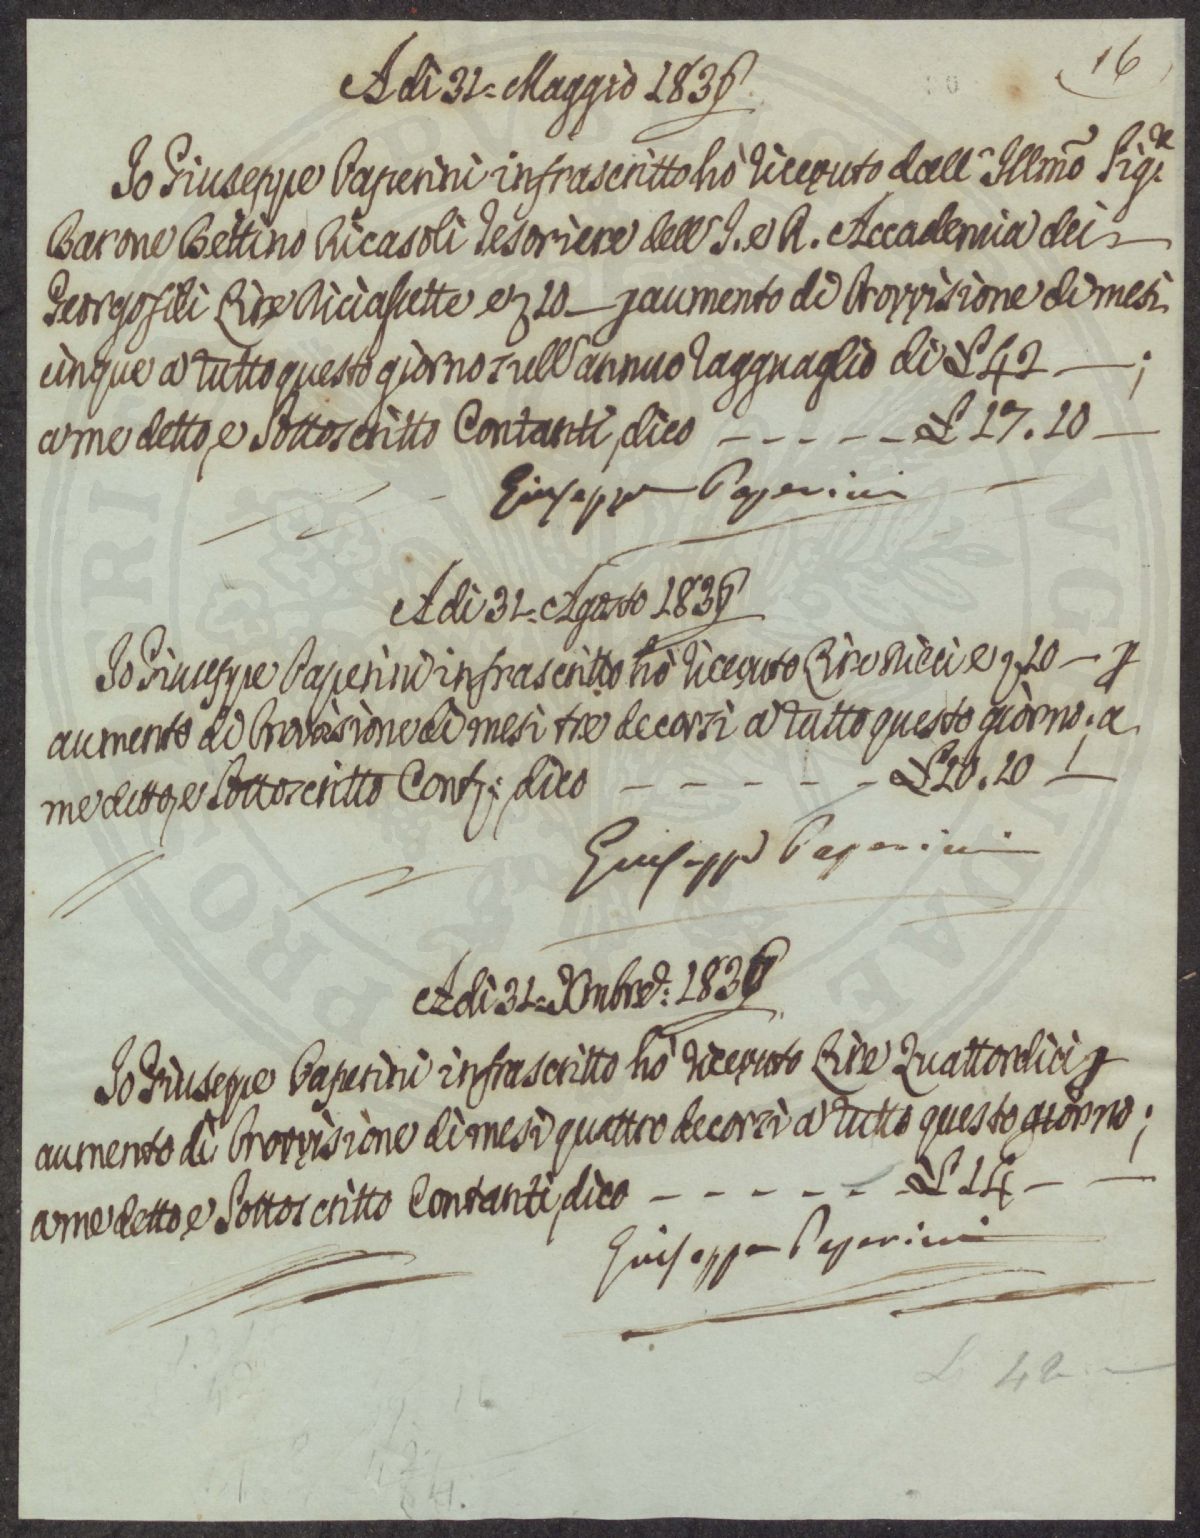 16
A dì 31= Maggio 183
Io Giuseppe Paperini infrascritto hò ricevuto dall' Illmo Sigre
Barone Bettino Ricasoli Tesoriere dell' I. e R. Accademia dei
Georgofili Lire Diciassette e 10 — p aumento di Provvisione di mesi
cinque a tutto questo giorno sull' annuo ragguaglio di £ 42 — ;
a me detto, e Sottoscritto Contanti, dico — — — — — £ 17. 10 —
Giuseppe Paperini
A dì 31= Agosto 183
Io Giuseppe Paperini infrascritto hò ricevuto Lire Dieci e 10 — p
aumento di Provvisione di mesi tre decorsi a tutto questo giorno; a
me detto, e Sottoscritto Conti: dico — — — — — — £ 10. 10 —
Giuseppe Paperini
A dì 31= Xmbre: 183
Io Giuseppe Paperini infrascritto hò ricevuto Lire Quattordici p
aumento di Provvisione di mesi quattro decorsi a tutto questo giorno;
a me detto e Sottoscritto Contanti, dico — — — — — — £ 14 — —
Giuseppe Paperini
L 42 —